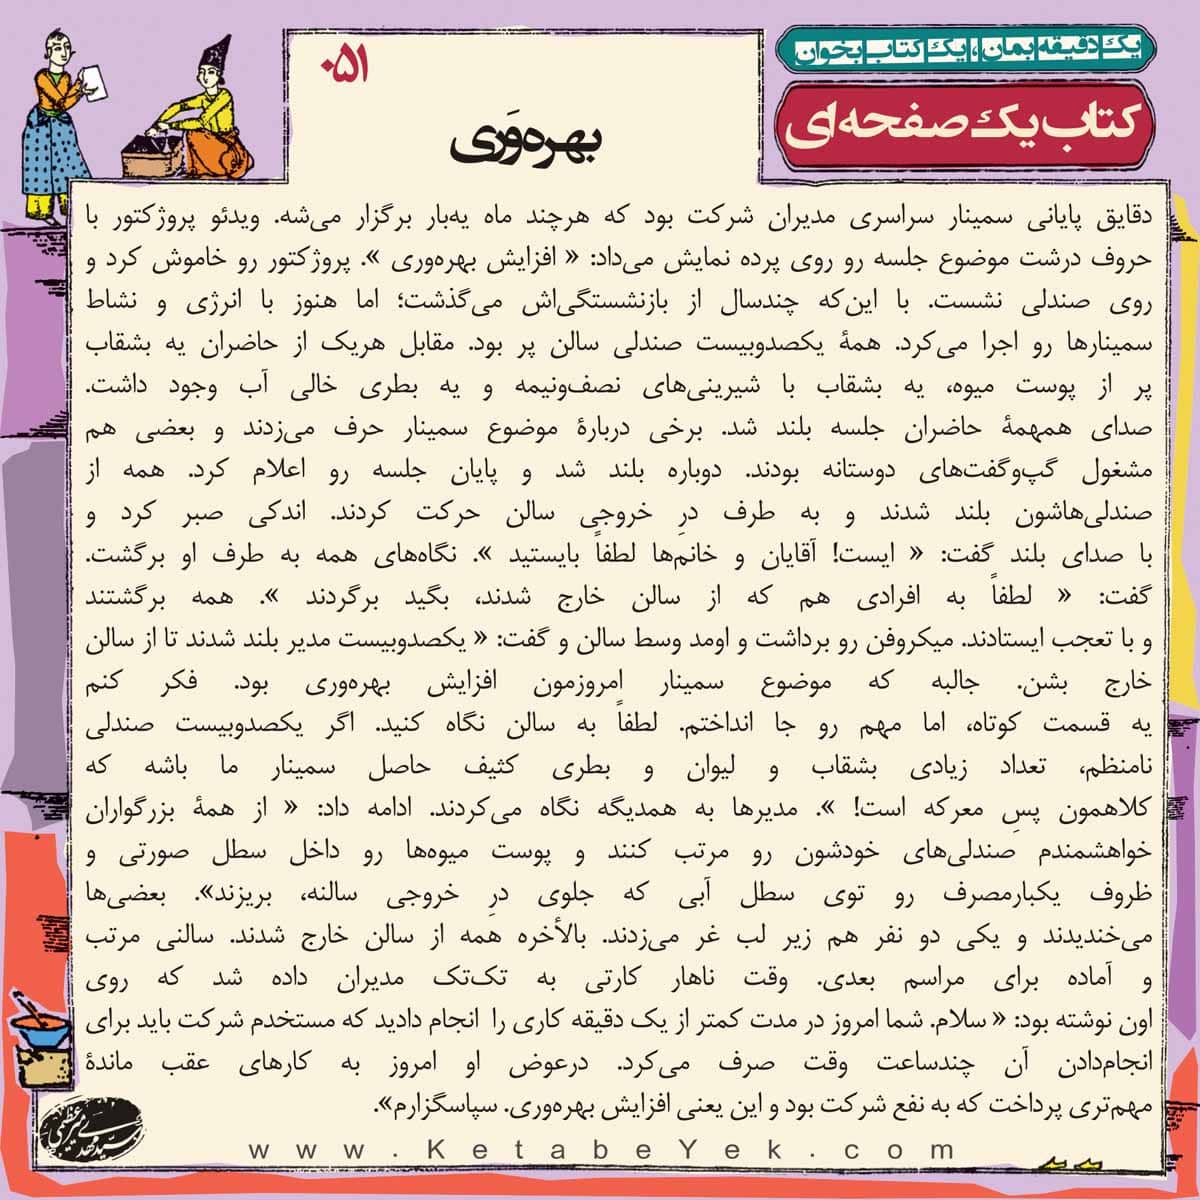 یک دقیقه بمان، یک کتاب بخوان
کتاب یک صفحه‌ای
۰۵۱
بهره‌وَری
دقایق پایانی سمینار سراسری مدیران شرکت بود که هرچند ماه یه‌بار برگزار می‌شه. ویدئو پروژکتور با
حروف درشت موضوع جلسه رو روی پرده نمایش می‌داد: « افزایش بهره‌وری ». پروژکتور رو خاموش کرد و
روی صندلی نشست. با این‌که چندسال از بازنشستگی‌اش می‌گذشت؛ اما هنوز با انرژی و نشاط
سمینارها رو اجرا می‌کرد. همهٔ یکصدوبیست صندلی سالن پر بود. مقابل هریک از حاضران یه بشقاب
پر از پوست میوه، یه بشقاب با شیرینی‌های نصف‌ونیمه و یه بطری خالی آب وجود داشت.
صدای همهمهٔ حاضران جلسه بلند شد. برخی دربارهٔ موضوع سمینار حرف می‌زدند و بعضی هم
مشغول گپ‌وگفت‌های دوستانه بودند. دوباره بلند شد و پایان جلسه رو اعلام کرد. همه از
صندلی‌هاشون بلند شدند و به طرف درِ خروجی سالن حرکت کردند. اندکی صبر کرد و
با صدای بلند گفت: « ایست! آقایان و خانم‌ها لطفاً بایستید ». نگاه‌های همه به طرف او برگشت.
گفت: « لطفاً به افرادی هم که از سالن خارج شدند، بگید برگردند ». همه برگشتند
و با تعجب ایستادند. میکروفن رو برداشت و اومد وسط سالن و گفت: « یکصدوبیست مدیر بلند شدند تا از سالن
خارج بشن. جالبه که موضوع سمینار امروزمون افزایش بهره‌وری بود. فکر کنم
یه قسمت کوتاه، اما مهم رو جا انداختم. لطفاً به سالن نگاه کنید. اگر یکصدوبیست صندلی
نامنظم، تعداد زیادی بشقاب و لیوان و بطری کثیف حاصل سمینار ما باشه که
کلاهمون پسِ معرکه است! ». مدیرها به همدیگه نگاه می‌کردند. ادامه داد: « از همهٔ بزرگواران
خواهشمندم صندلی‌های خودشون رو مرتب کنند و پوست میوه‌ها رو داخل سطل صورتی و
ظروف یکبارمصرف رو توی سطل آبی که جلوی درِ خروجی سالنه، بریزند». بعضی‌ها
می‌خندیدند و یکی دو نفر هم زیر لب غر می‌زدند. بالأخره همه از سالن خارج شدند. سالنی مرتب
و آماده برای مراسم بعدی. وقت ناهار کارتی به تک‌تک مدیران داده شد که روی
اون نوشته بود: « سلام. شما امروز در مدت کمتر از یک دقیقه کاری را انجام دادید که مستخدم شرکت باید برای
انجام‌دادن آن چندساعت وقت صرف می‌کرد. درعوض او امروز به کارهای عقب ماندهٔ
مهم‌تری پرداخت که به نفع شرکت بود و این یعنی افزایش بهره‌وری. سپاسگزارم».
www.KetabeYek.com